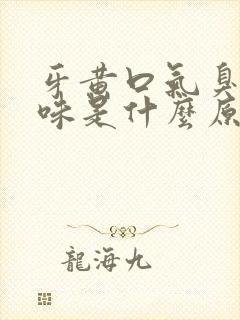 牙黃口氣臭
味是什麼原
龍海九